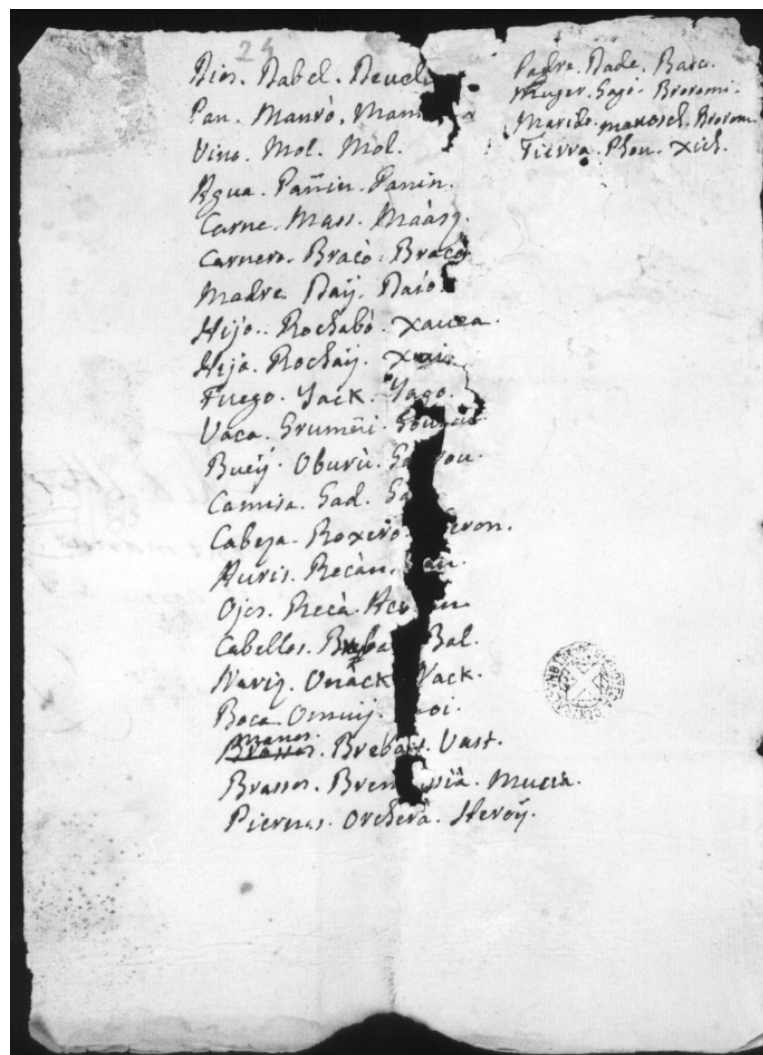 24
Dios. Dabel. Deuel
Pan. Manrò. Man
Vino. Mol. Mol.
Agua. Pañin. Panin.
Carne. Mass. Maàsq.
Carnero. Bracò. Bracò
Madre. Daij. Daio.
Hijo. Rochabò. xauea.
Hija. Rochaij.
Fuego. Yack. Yago.
Vaca. Grumèni.
Bueij. Oburù.
Camisa. Gad.
Cabeza. Roxerò. eron.
Auris. Recàn.
Ojos. Recà.
Cabellos. Bal.
Nariz. Onàck. Vack.
Boca. Omuij. oi.
manos. Brebast. Vast.
Brassos. Brem ssià. Mucia.
Piernas. Orcherà. Heroij.
Padre. Dade. Baro.
Muger. Gagi. Broromi.
Marido. manosch. Brorom.
Tierra. Phou. xich.